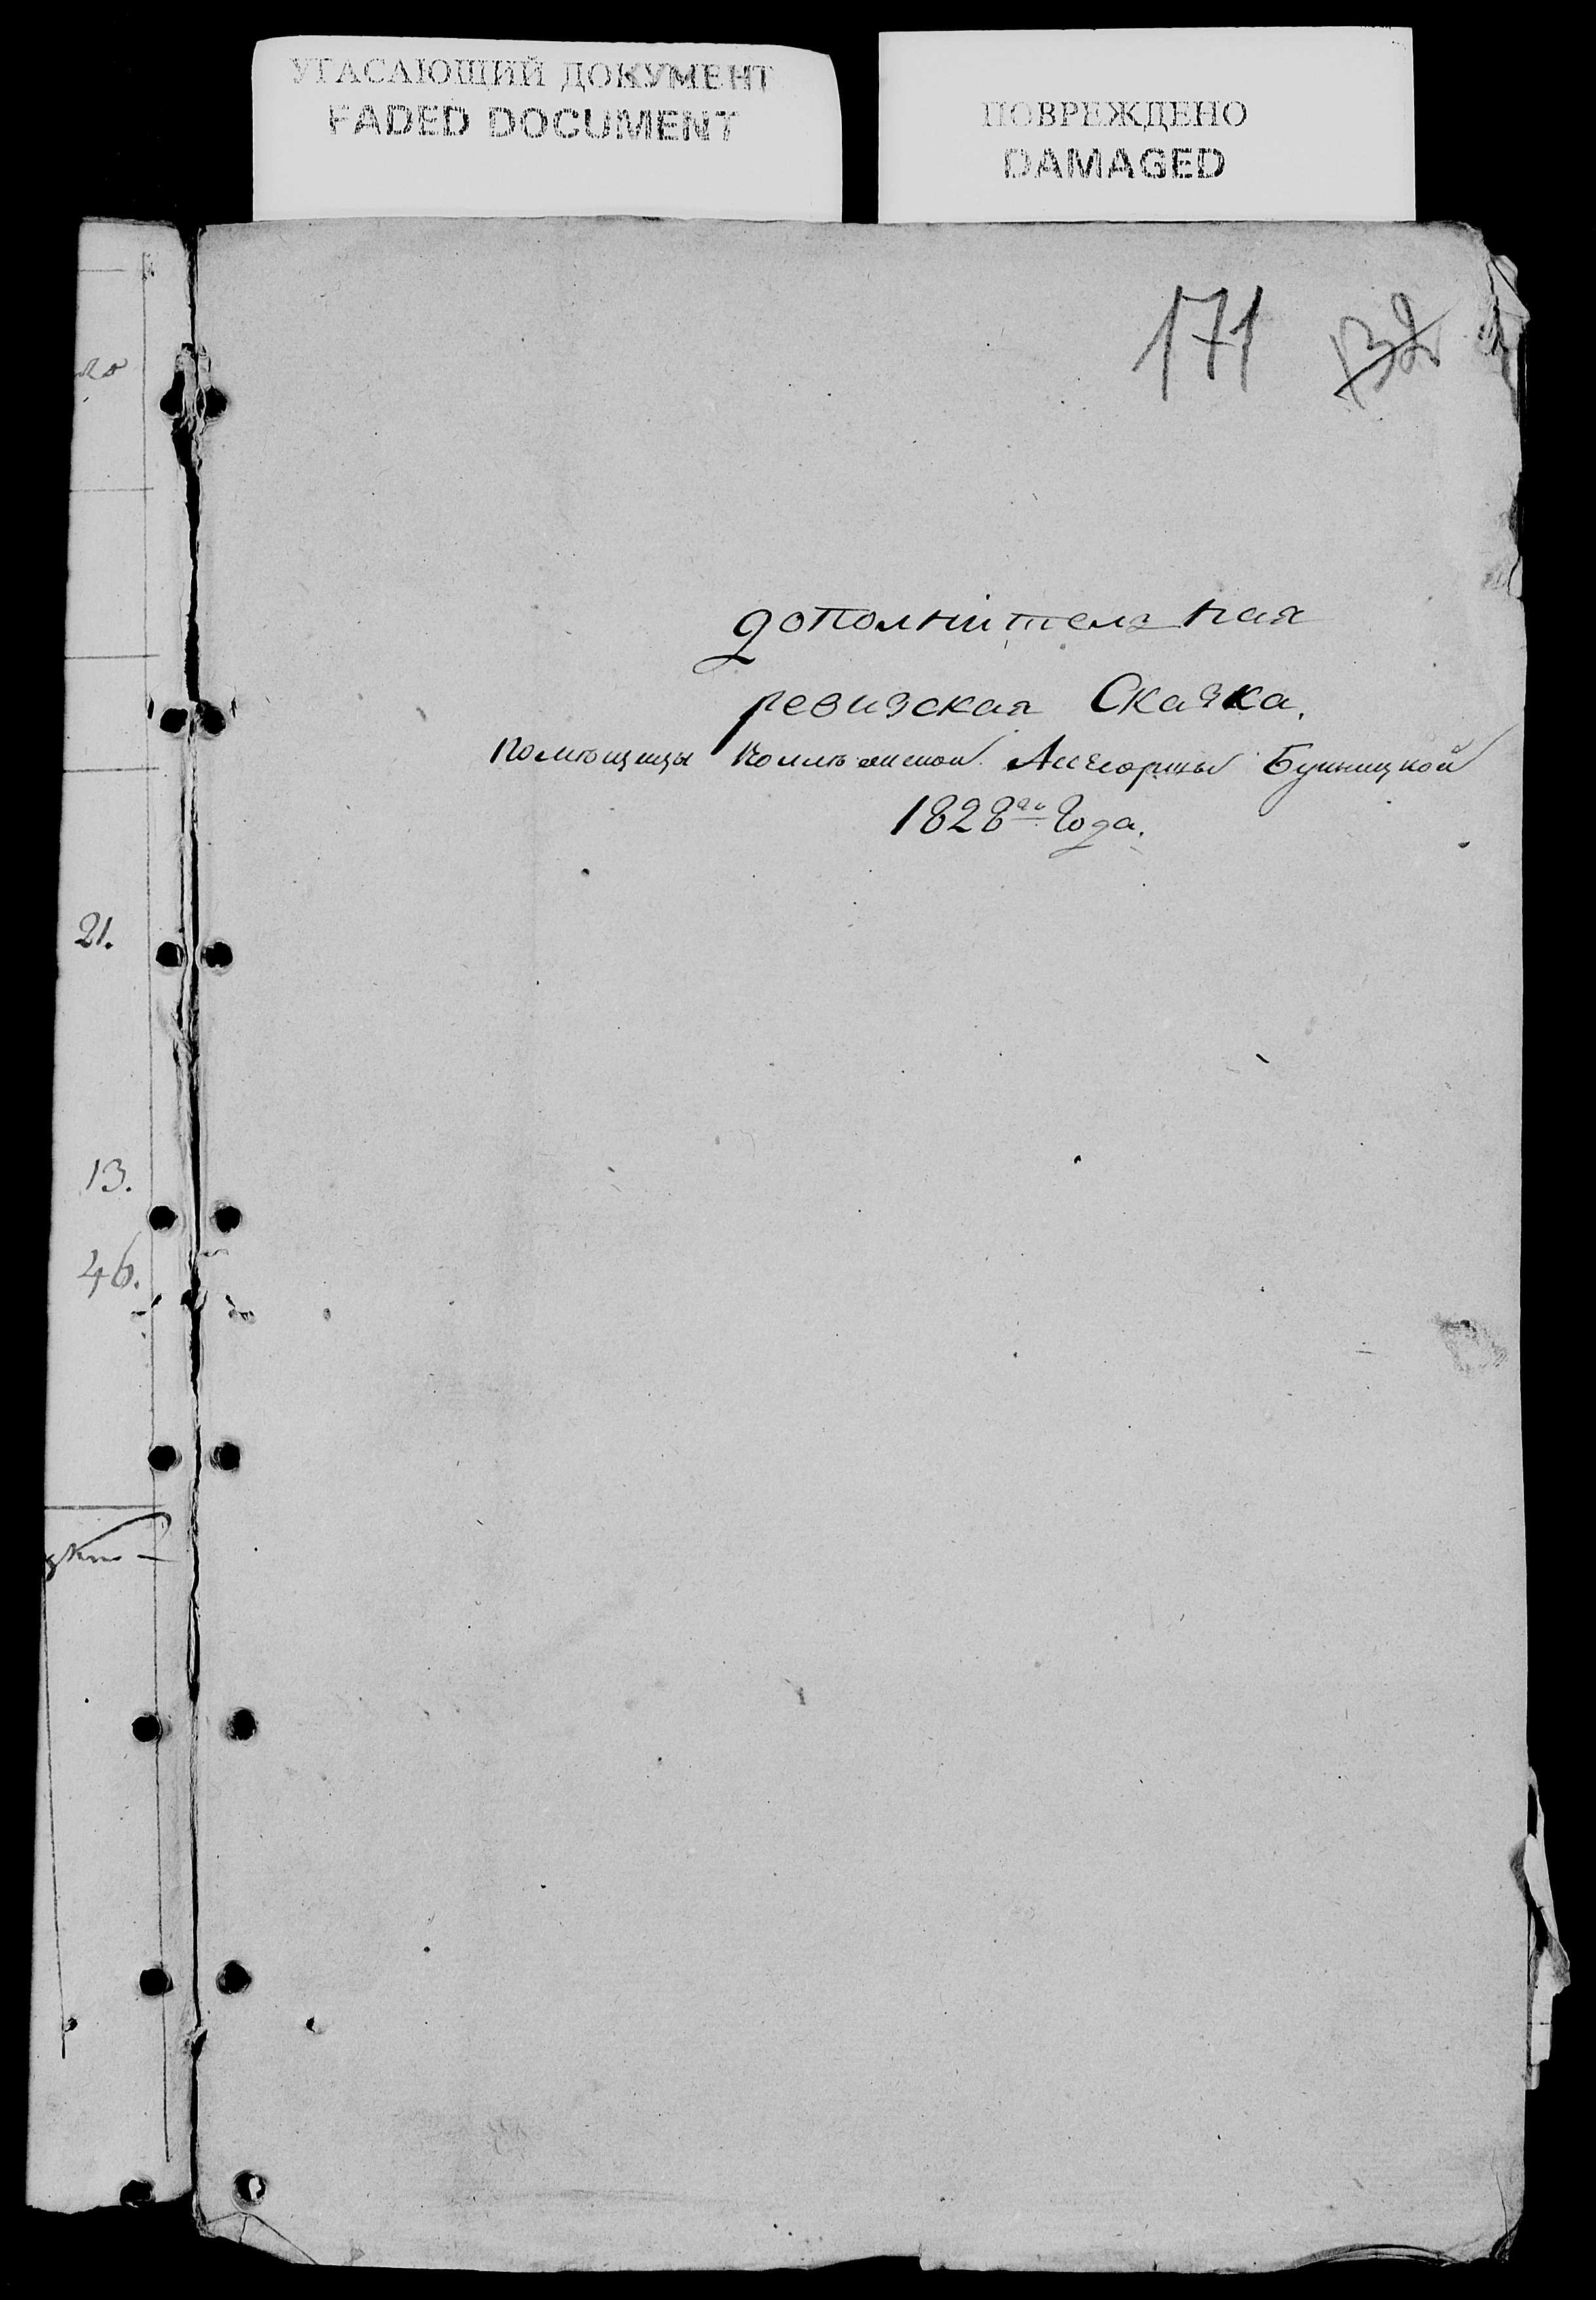 УГАСАЮЩИЙ ДОКУМЕНТ
FADED DOCUMENT
ПОВРЕЖДЕНО
DAMAGED
171 132
дополнительная
ревизская Сказка.
Помѣщицы Коллѣжской Ассесорши Буяницкой
1828го Года.
21.
13.
46.